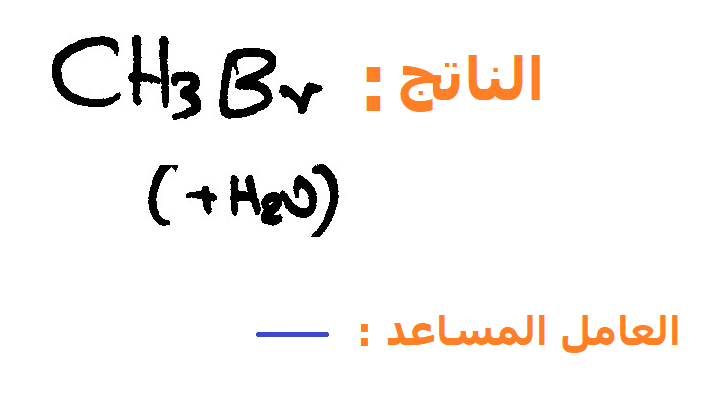 الناتج : CH3Br
(+H2O)
العامل المساعد : —